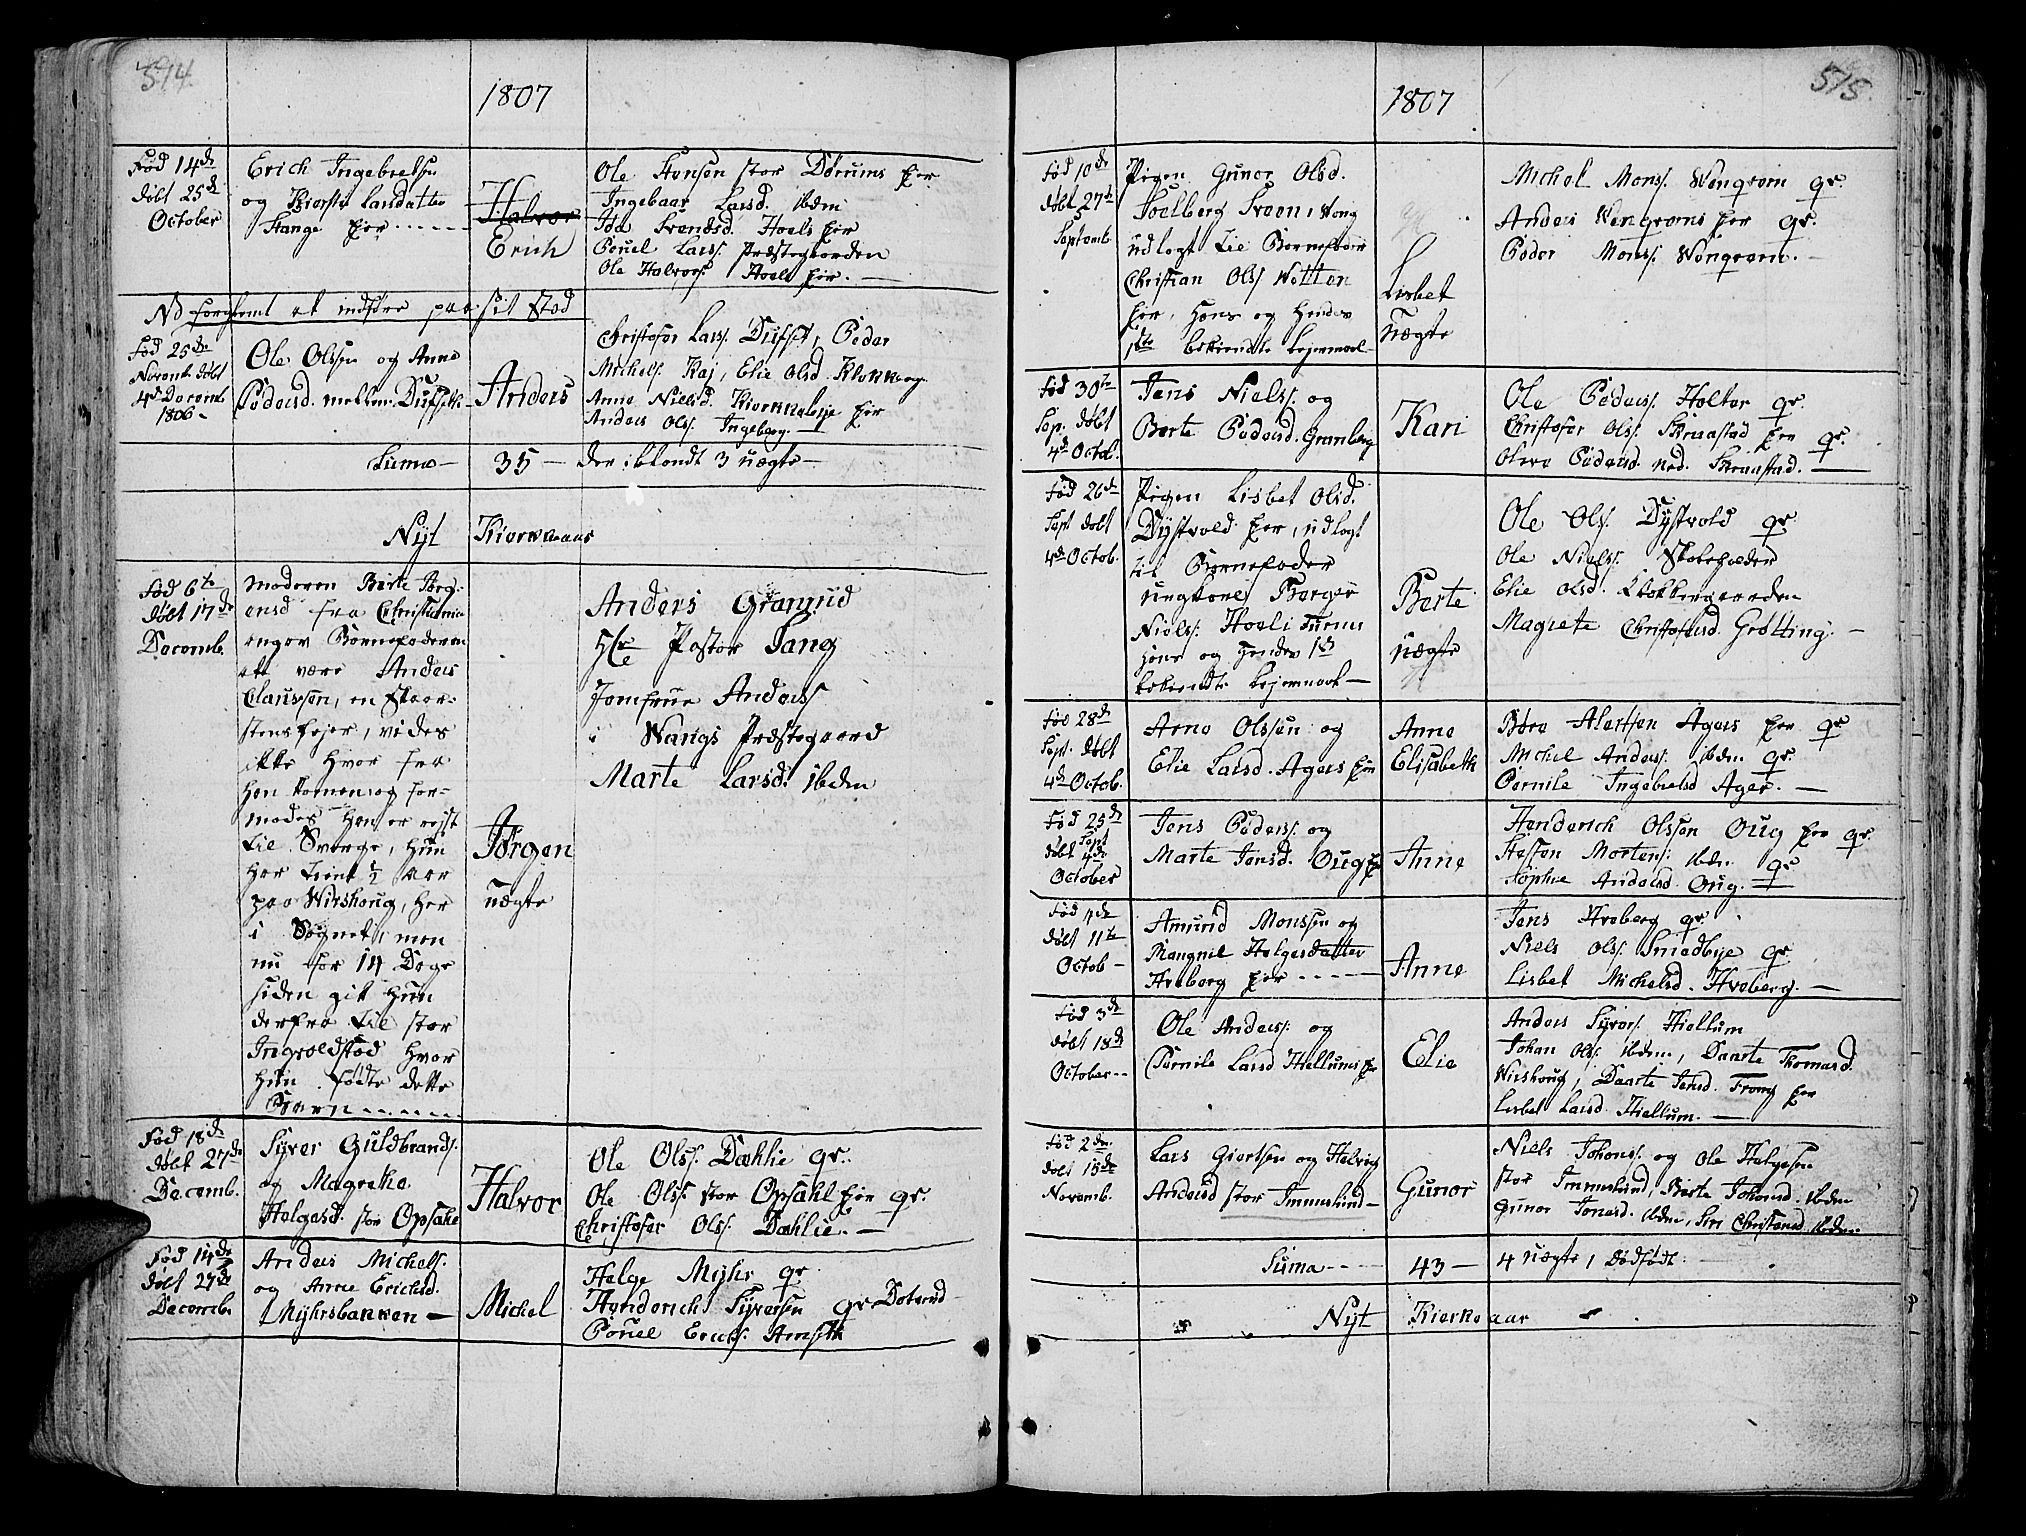 514.
1807
Fød 14de
døbt 25de
October
Erich Ingebretsen
og Kiersti Larsdatter
Stange eier
Halvor
Erich
Ole Hansen stor Dørums eier
Ingebaar Larsd. ibdm
Ida Svendsd. Hoels eier
Pouel Larss. Præstegaarden
Ole Halvors. Hoels eier.
NB forglemt at indføre paa sit Stæd
Fød 25de
Novemb. døbt
4de Decemb.
1806
Ole Olssen og Anne
Pedersd. mellem Dufseth
Anders
Christofer Larss. Dufset, Peder
Michels. Kaj, Elie Olsd. Klokkerg.
Anne Nielsd. Kierkeleye eier
Anders Ols. Ingeberg.
Suma 35 der iblandt 3 uægte
Nyt Kierkeaar
Fød 6te
døbt 17de
Decemb.
moderen Berte Jørg-
ensd fra Christiania
angav Barnefaderen
at være Anders
Claussen, en Skaar-
stensfejer, vides
ikke hvor fra
han kommen og for-
modes han er rejst
til Sverge, hun
har tient ½ aar
paa Wirshoug, her
i Sognet, men
nu for 14 Dage
siden gik hun
derfra til stor
Ingvoldstad hvor
hun fødte dette
Barn
Jørgen
uægte
Anders Grønrud
Hr Pastor Lang
Jomfrue Anders
i Wangs Præstegaard
Marte Larsd. ibden
Fød 18de
døbt 27de
Decemb.
Syver Guldbrands.
og Magrethe
Helgesd. stor Opsahl
Halvor
Ole Olss. Dæhlie gr.
Ole Olss. stor Opsahl eier gr.
Christofer Ols. Dæhlie.
Fød 14de
døbt 27de
Decemb.
Anders Michels.
og Anne Erichsd.
Myhrsbakken
Michel
Helge Myhr gr
Henderich Syversen gr
Pouel Erichs. Amseth
515.
1807
Fød 10de
døbt 27de
Septemb.
Pigen Gunor Olsd.
Solberg Sveen, Wang
udlagt til Barnefader
Christian Ols. Wetten
eier, Hans og Hendes
1ste bekiendte Lejermaal
Lisbet
uægte
Michel Mons. Wengrøm gr.
Anders Wengrøms eier gr.
Peder Mons. Wengrøm.
Fød 30te
Sep. døbt
4de Octob.
Jens Nielss. og
Berte Pedersd. Granberg
Kari
Ole Pederss. Holter gr.
Christofer Ols. Skraastad eier gr.
Olava Pedersd. ned. Skraastad.
Fød 26de
Sept døbt
4de Octob.
Pigen Lisbet Olsd.
Dystvold eier, udlagt
til Barnefader
ungkarl Børger
Niels. Hoeli Furnes
hans og hendes 1ste
bekiendte Lejermaal
Berte
uægte
Ole Ols. Dystvold gr
Ole Nielss. Skoleholder
Elie Olsd. Klokkergaarden
Magrete Christofersd. Grøtting.
Fød 28de
Sept. døbt
4de Octob.
Arne Olssen og
Elie Larsd. Agers eier
Anne
Elisabeth
Michel Anders. ibden gr.
Pernile Ingebretsd Ager.
Fød 25de
Sept
døbt 4de
October
Jens Peders. og
Marte Jensd. Oug eier
Anne
Henderich Olssen Oug eier gr
Hesten Mortens. ibdn gr
Sophie Andersd. Oug.
Fød 1de
døbt 11te
Octob
Amund Monssen og
Mangnil Helgesdatter
Hveberg eier
Anne
Jens Hveberg gr
Niels Ols. Smedbye gr
Lisbet Michelsd. Hveberg.
Fød 3de
døbt 18de
October
Ole Anderss. og
Pernile Larsd Hiellums eier
Elie
Anders Syvers. Hiellum
Johan Ols. ibdem, Daarte Thomasd.
Wirshoug, Daarte Jensd. Frong eier
Lisbet Larsd. Hiellum.
Fød 2de
døbt 15de
Novemb.
Lars Giertsen og Helvig
Andersd stor Immerslund
Gunor
Niels Johans. og Ole Helgesen
stor Immerslund, Berte Johansd. ibdem
Gunor Jonasd. ibdem, Siri Christensd. ibdem
Suma 43 4 uægte, 1 Dødfødt
Nyt Kierkeaar